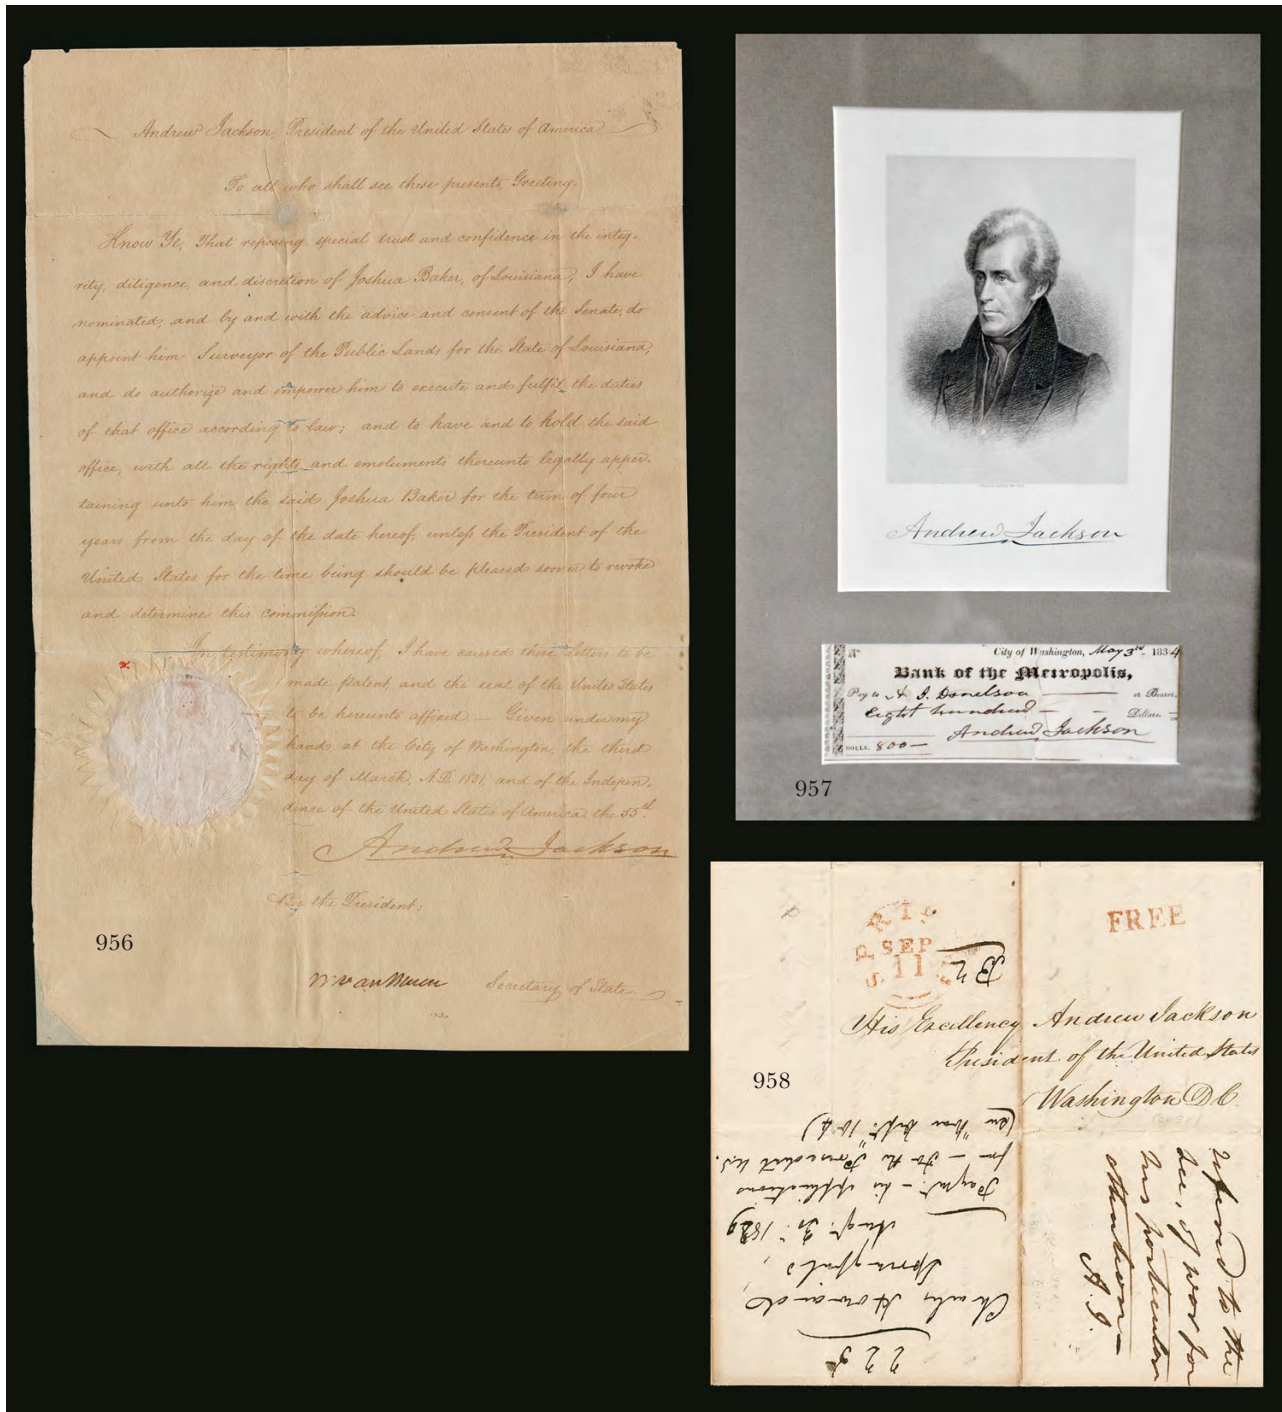 Andrew Jackson, President of the United States of America
To all who shall see these presents, Greeting.
Know Ye, That reposing special trust and confidence in the integ-
rity, diligence, and discretion of Joshua Baker, of Louisiana, I have
nominated, and by and with the advice and consent of the Senate, do
appoint him Surveyor of the Public Lands for the State of Louisiana,
and do authorize and empower him to execute and fulfil the duties
of that office according to law; and to have and to hold the said
office, with all the rights and emoluments thereunto legally apper-
taining unto him the said Joshua Baker for the term of four
years from the day of the date hereof, unless the President of the
United States for the time being should be pleased sooner to revoke
and determine this commission.
In testimony whereof, I have caused these Letters to be
made Patent, and the seal of the United States
to be hereunto affixed. — Given under my
hand, at the City of Washington, the third
day of March, A.D. 1831, and of the Indepen-
dence of the United States of America, the 55th.
Andrew Jackson
By the President:
M. Van Buren Secretary of State.
956
Andrew Jackson
No. City of Washington, May 3rd 1834
Bank of the Metropolis,
Pay to A. J. Donelson or Bearer,
Eight hundred Dollars
Andrew Jackson
DOLLS. 800—
957
SPRI
SEP
11
FREE
B 2
His Excellency Andrew Jackson
President of the United States
Washington D C.
958
refered to the
sec, of war for
his particular
attention—
A. J.
225
Charles Howard
Springfield,
Augt. 30. 1829
for — to the President U.S.